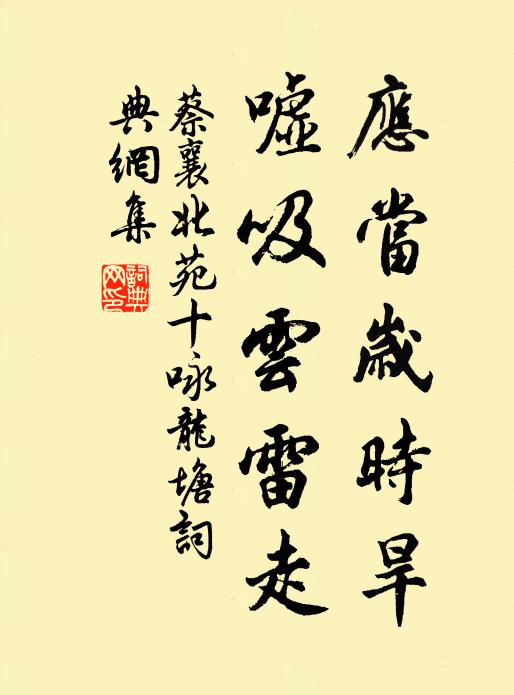 應當歲時旱
噓吸雲雷走
蔡襄北苑十咏龍塘詞
典網集
詞典
网印